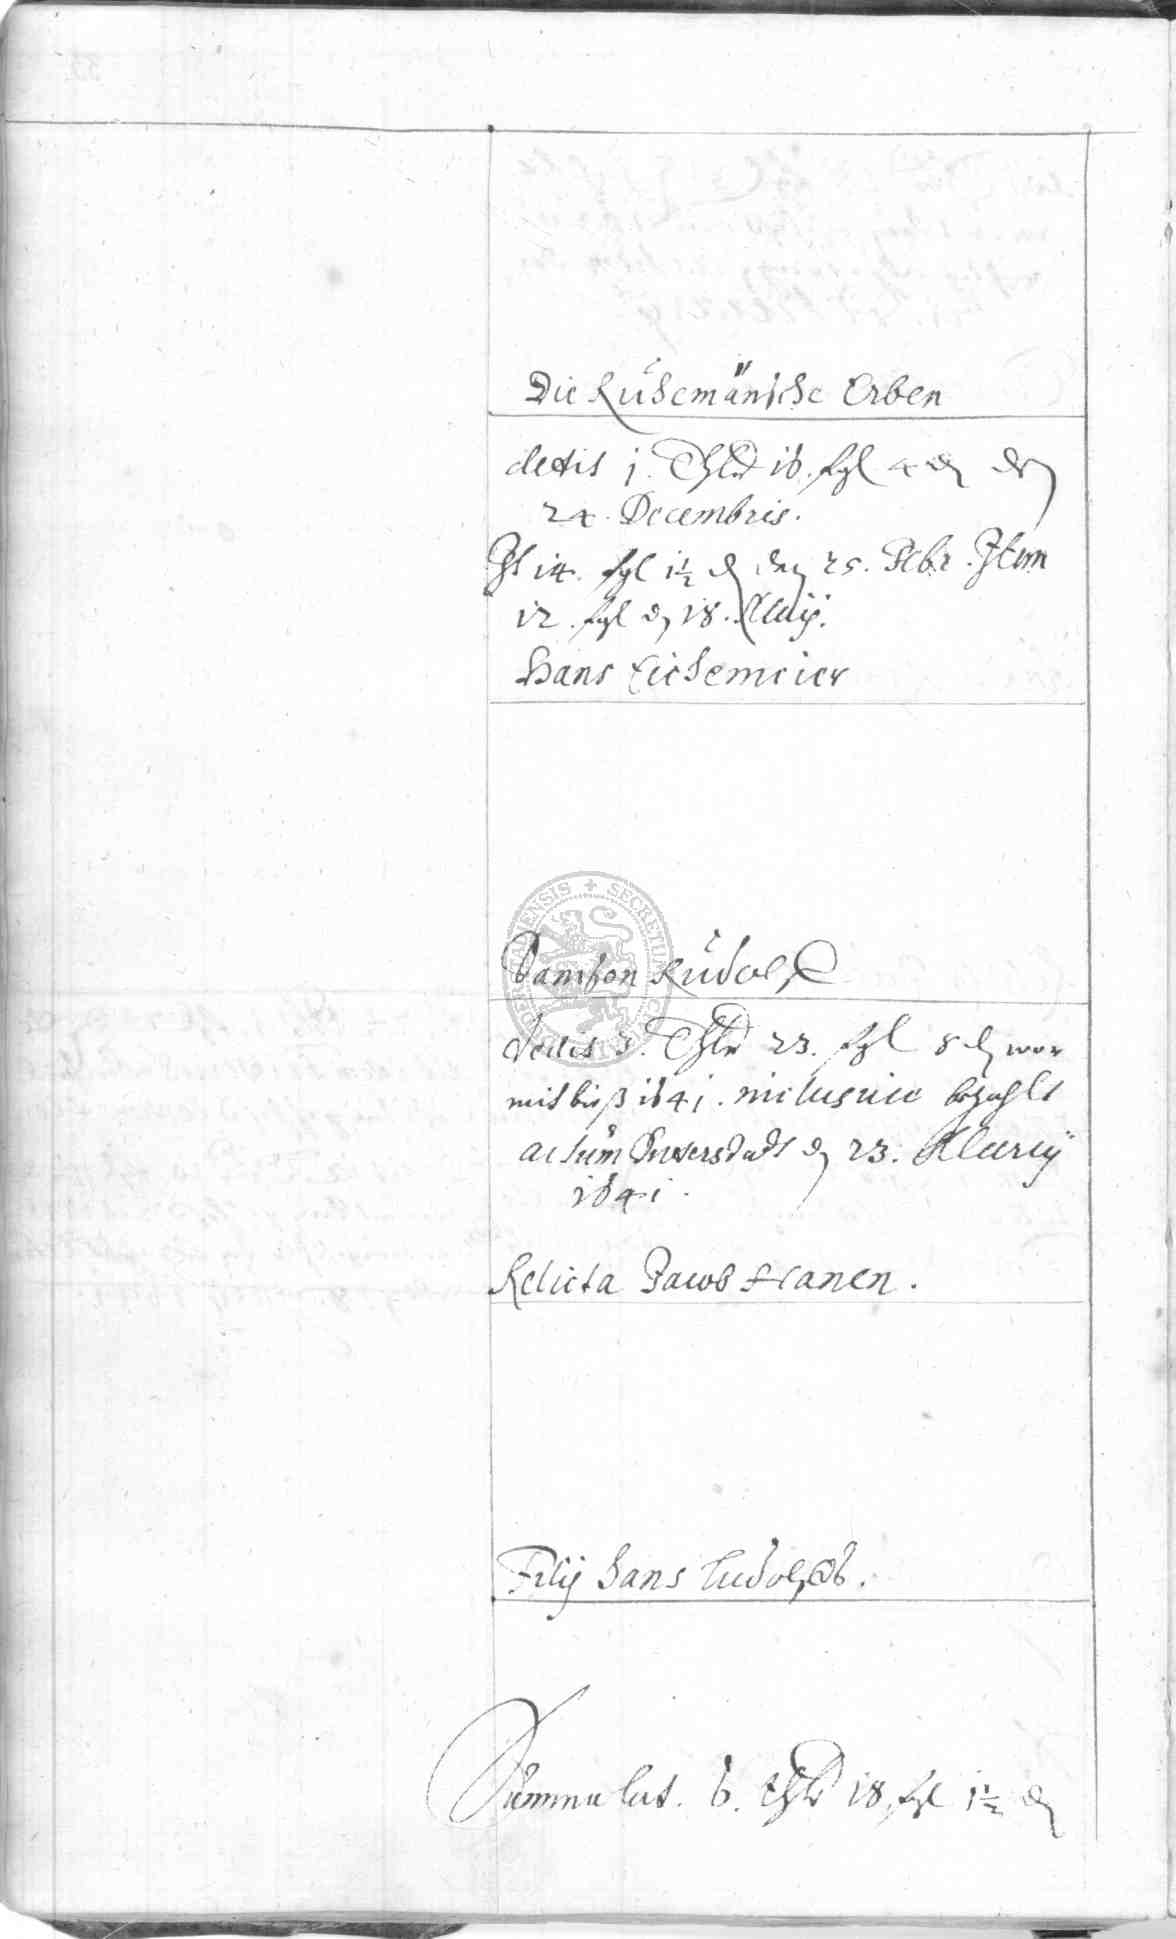 Die Kühemänsche Erben
dedit 1. Thlr 16. sgl 4 ₰ den
24. Decembris.
It 14. sgl 1½ ₰ den 25. Febr. Item
12. sgl d 18. Maij.
Hans Eichemeier
Samson Rudolff
dedit 3. Thlr 23. sgl 8 ₰ wor
mit biß 1641. inclusive bezahlt
actum Duderstadt d 23. Marcij
1641.
Relicta Jacob Franen.
Filij Hans Ludolffs.
Summa lat. 6. thlr 18 sgl 1½ ₰